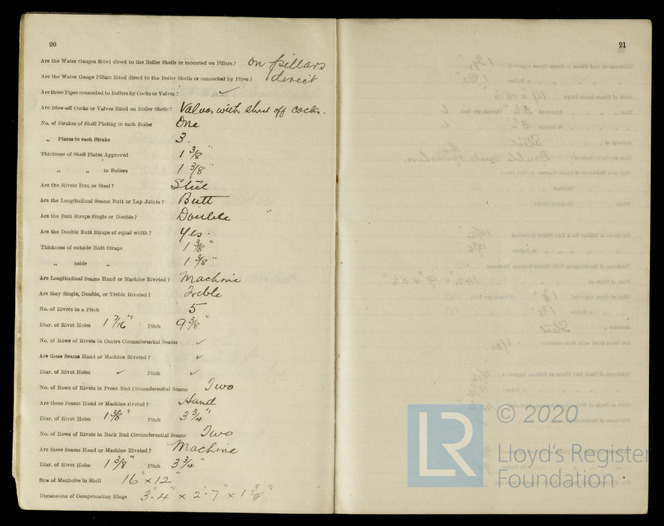 20
Are the Water Gauges fitted direct to the Boiler Shells or mounted on Pillars? On pillars
Are the Water Gauge Pillars fitted direct to the Boiler Shells or connected by Pipes? direct
Are these Pipes connected to Boilers by Cocks or Valves? ✓
Are Blow-off Cocks or Valves fitted on Boiler Shells? Valves with shut off cocks.
No. of Strakes of Shell Plating in each Boiler One
„ Plates in each Strake 3.
Thickness of Shell Plates Approved 1 3/8"
„ „ in Boilers 1 3/8"
Are the Rivets Iron or Steel? Steel
Are the Longitudinal Seams Butt or Lap Joints? Butt
Are the Butt Straps Single or Double? Double
Are the Double Butt Straps of equal width? Yes.
Thickness of outside Butt Straps 1 3/8"
„ inside „ 1 3/8"
Are Longitudinal Seams Hand or Machine Riveted? Machine
Are they Single, Double, or Treble Riveted? Treble
No. of Rivets in a Pitch 5
Diar. of Rivet Holes 1 7/16" Pitch 9 3/8"
No. of Rows of Rivets in Centre Circumferential Seams ✓
Are these Seams Hand or Machine Riveted? ✓
Diar. of Rivet Holes ✓ Pitch ✓
No. of Rows of Rivets in Front End Circumferential Seams Two
Are these Seams Hand or Machine riveted? Hand
Diar. of Rivet Holes 1 3/8" Pitch 3 3/4"
No. of Rows of Rivets in Back End Circumferential Seams Two
Are these Seams Hand or Machine Riveted? Machine
Diar. of Rivet Holes 1 3/8" Pitch 3 3/4"
Size of Manholes in Shell 16" x 12"
Dimensions of Compensating Rings 3'-4" x 2'-7" x 1 3/8"
21
LR © 2020
Lloyd's Register
Foundation